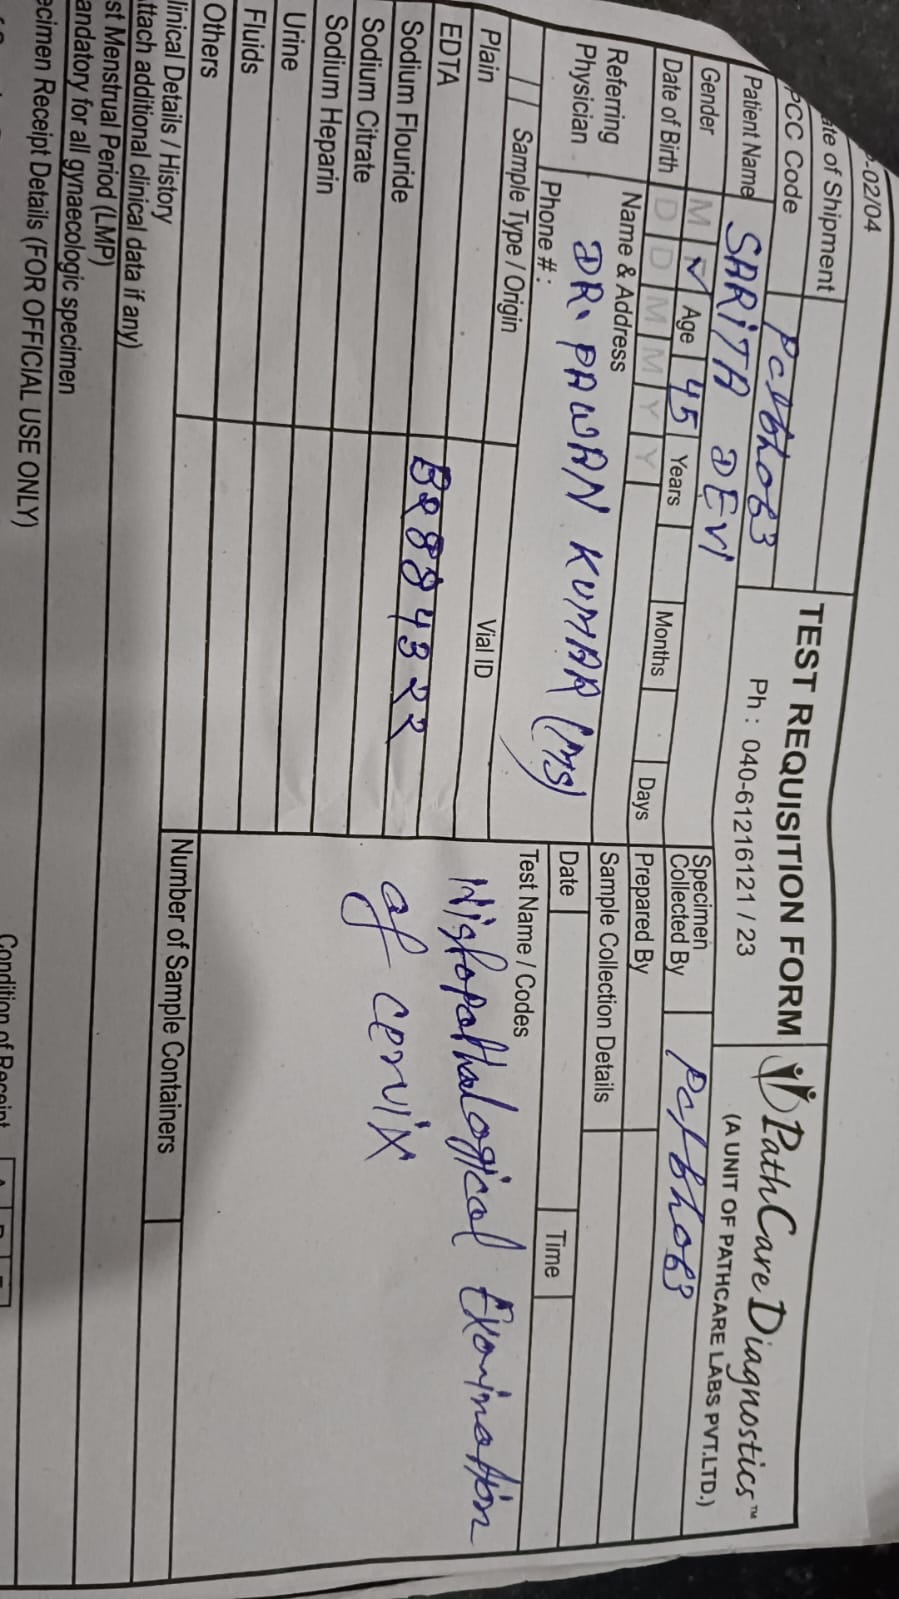 -02/04
TEST REQUISITION FORM
Ph : 040-61216121 / 23
PathCare Diagnostics™
(A UNIT OF PATHCARE LABS PVT.LTD.)
ate of Shipment
PCC Code Pclbho63
Patient Name SARITA DEVI
Gender M ✓ Age 45 Years Months Days
Date of Birth D D M M Y Y
Specimen Collected By Pclbho63
Prepared By
Referring Physician
Name & Address
DR. PAWAN KUMAR (MS)
Phone # :
Sample Collection Details
Date Time
Sample Type / Origin Vial ID
Test Name / Codes
Plain
EDTA
Sodium Flouride B2884322
Sodium Citrate
Sodium Heparin
Urine
Fluids
Others
Histopathalogical Examination
of cervix
linical Details / History
Number of Sample Containers
ttach additional clinical data if any)
st Menstrual Period (LMP)
andatory for all gynaecologic specimen
ecimen Receipt Details (FOR OFFICIAL USE ONLY)
Condition of Receipt